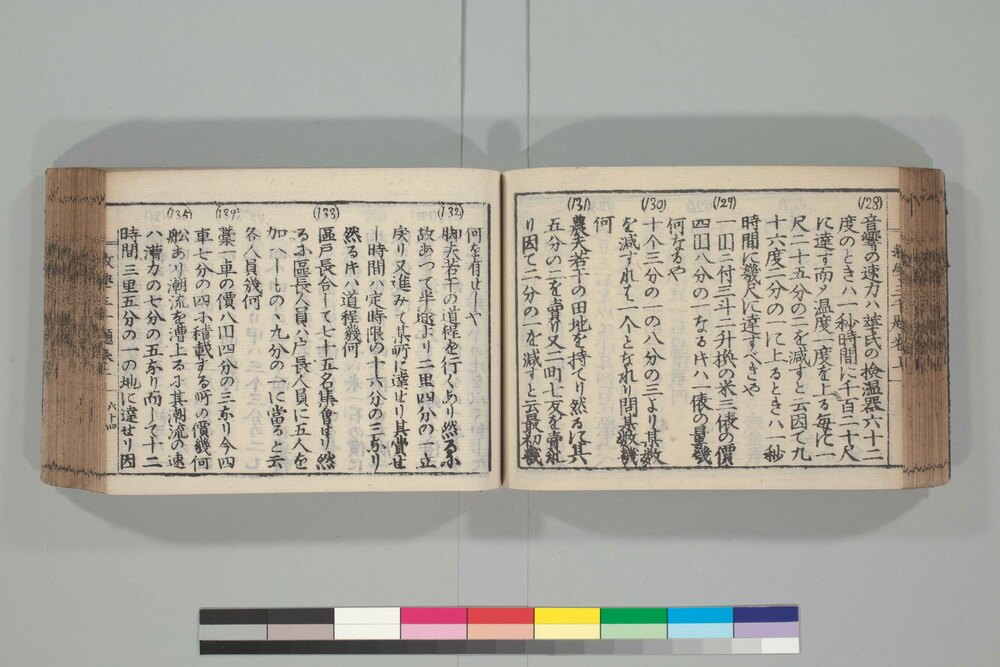 (128)
音響ノ速力ハ華氏の撿温器六十二
度のときハ一秒時間に千百二十尺
に達す而〆温度一度を上る毎に一
尺二十五分の二を減すと云因て九
十六度二分の一に上るときハ一秒
時間に幾尺に達すべきや
(129)
一円ニ付三斗二升換の米三俵の價
四円八分の一なる片ハ一俵の量幾
何なるや
(130)
十个三分の一の八分の三より其数
を減ずれバ一个となれり問其数幾
何
(131)
農夫若干の田地を持てり然るに其
五分の二を賣り又二町七反を賣
り因て二分の一を減すと云最初幾
何を有せしや
(132)
脚夫若干の道程を行くあり然るに
故あつて半途より二里四分の一立
戻り又進みて其所に達せり其費せ
し時間ハ定時限の十六分の三なり
然る片ハ道程幾何
(133)
區戸長合して七十五名集會せり然
るに區長人員ハ戸長人員に五人を
加へしもの、九分の二に當ると云
各人員幾何
(134)
藁一車の價八円四分の三なり今四
車七分の四に積載する所の價幾何
(135)
舩あり潮流を漕上るに其潮流の速
ハ漕力の七分の五なり而して十二
時間三里五分の一の地に達せり因